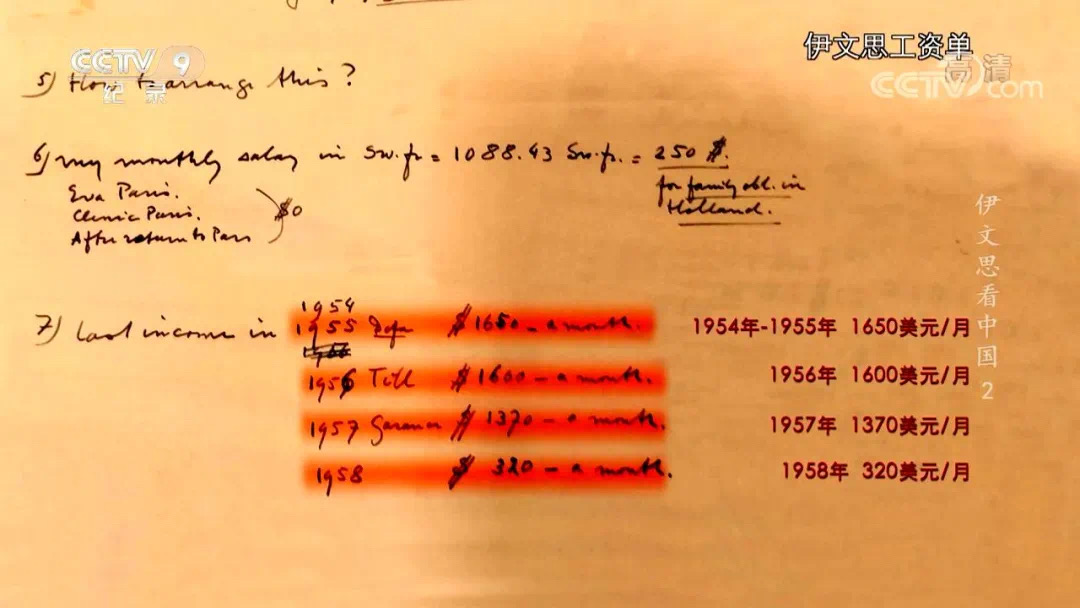 CCTV 9
纪录
伊文思工资单
高清
CCTV.com
5) How to arrange this?
6) my monthly salary in Sw.fr = 1088.43 Sw.fr. = 250 $.
for family obl. in
Holland.
Eva Paris.
Clinic Paris.
After return to Paris
$0
伊文思看中国 2
7) Last income in
1954
1955 $ 1650 - a month. 1954年-1955年 1650美元/月
1956 Till $ 1600 - a month. 1956年 1600美元/月
1957 $ 1370 - a month. 1957年 1370美元/月
1958 $ 320 - a month. 1958年 320美元/月